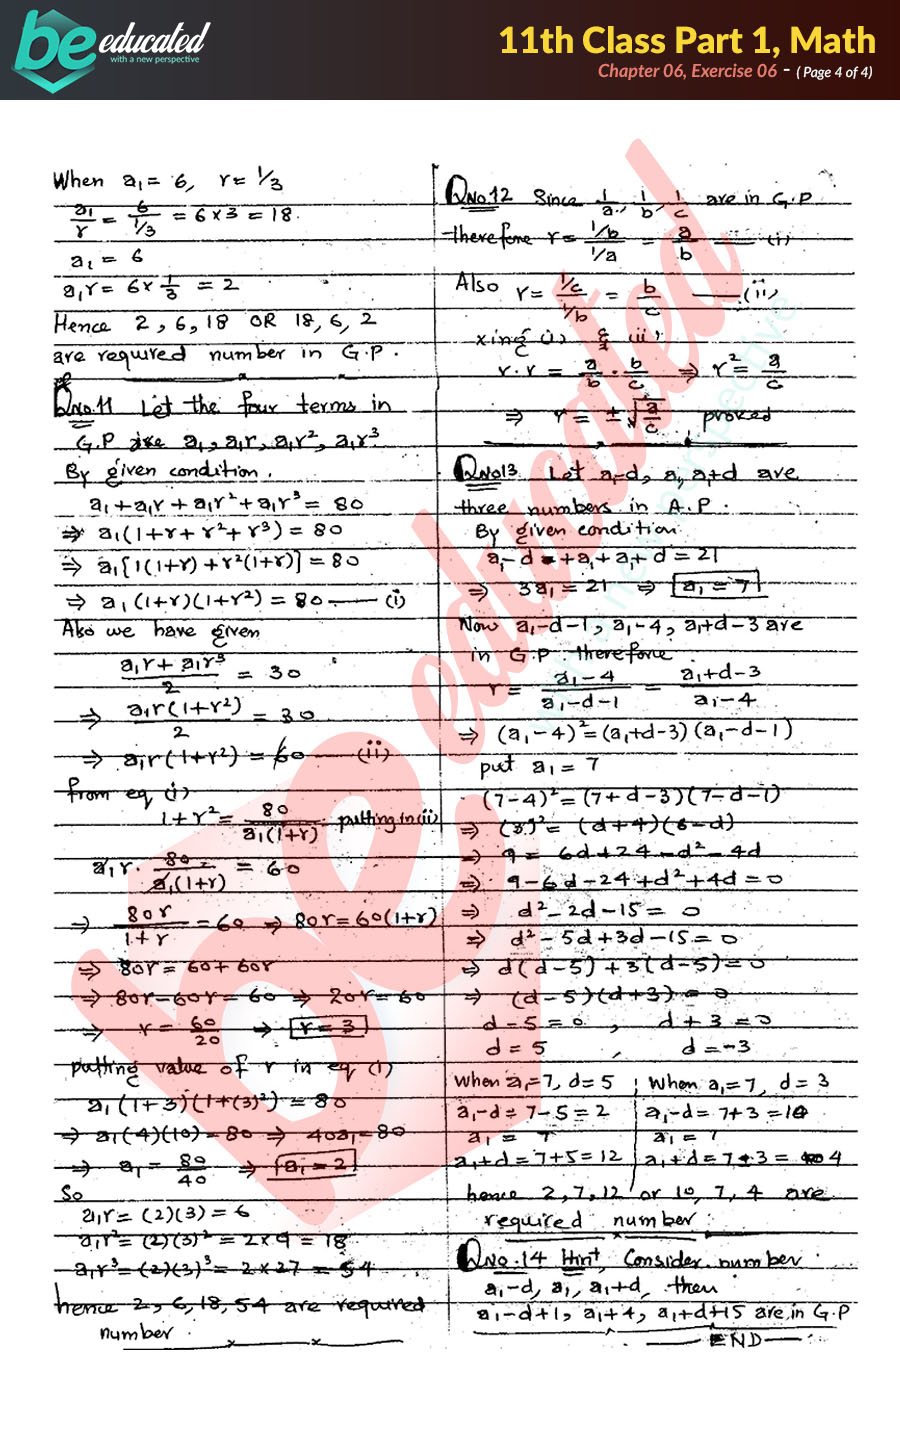 be educated
with a new perspective
11th Class Part 1, Math
Chapter 06, Exercise 06 - ( Page 4 of 4)
When a₁ = 6, r = 1/3
a₁/r = 6/(1/3) = 6×3 = 18.
a₁ = 6
a₁r = 6×1/3 = 2
Hence 2, 6, 18 OR 18, 6, 2
are required number in G.P.
QNo.11 Let the four terms in
G.P are a₁, a₁r, a₁r², a₁r³
By given condition.
a₁+a₁r+a₁r²+a₁r³ = 80
⇒ a₁(1+r+r²+r³) = 80
⇒ a₁[1(1+r)+r²(1+r)] = 80
⇒ a₁(1+r)(1+r²) = 80 — (i)
Also we have given
(a₁r+a₁r³)/2 = 30
⇒ a₁r(1+r²)/2 = 30
⇒ a₁r(1+r²) = 60 — (ii)
from eq (i)
1+r² = 80/(a₁(1+r)) putting in (ii)
a₁r · 80/(a₁(1+r)) = 60
⇒ 80r/(1+r) = 60 ⇒ 80r = 60(1+r)
⇒ 80r = 60+60r
⇒ 80r-60r = 60 ⇒ 20r = 60
⇒ r = 60/20 ⇒ r = 3
putting value of r in eq (i)
a₁(1+3)(1+(3)²) = 80
⇒ a₁(4)(10) = 80 ⇒ 40a₁ = 80
⇒ a₁ = 80/40 ⇒ a₁ = 2
So
a₁r = (2)(3) = 6
a₁r² = (2)(3)² = 2×9 = 18
a₁r³ = (2)(3)³ = 2×27 = 54
hence 2, 6, 18, 54 are required
number.
QNo.12 Since 1/a, 1/b, 1/c are in G.P
therefore r = (1/b)/(1/a) = a/b — (i)
Also r = (1/c)/(1/b) = b/c — (ii)
xing (i) & (ii)
r.r = a/b . b/c ⇒ r² = a/c
⇒ r = ±√(a/c) proved
QNo13. Let a₁-d, a₁, a₁+d are
three numbers in A.P.
By given condition
a₁-d+a₁+a₁+d = 21
⇒ 3a₁ = 21 ⇒ a₁ = 7
Now a₁-d-1, a₁-4, a₁+d-3 are
in G.P therefore
r = (a₁-4)/(a₁-d-1) = (a₁+d-3)/(a₁-4)
⇒ (a₁-4)² = (a₁+d-3)(a₁-d-1)
put a₁ = 7
(7-4)² = (7+d-3)(7-d-1)
⇒ (3)² = (d+4)(6-d)
⇒ 9 = 6d+24-d²-4d
⇒ 9-6d-24+d²+4d = 0
⇒ d²-2d-15 = 0
⇒ d²-5d+3d-15 = 0
⇒ d(d-5)+3(d-5) = 0
⇒ (d-5)(d+3) = 0
d-5 = 0 , d+3 = 0
d = 5 , d = -3
When a₁=7, d=5 | When a₁=7, d = 3
a₁-d = 7-5 = 2 | a₁-d = 7+3 = 10
a₁ = 7 | a₁ = 7
a₁+d = 7+5 = 12 | a₁+d = 7-3 = 4
hence 2, 7, 12 or 10, 7, 4 are
required number
QNo.14 Hint, Consider number
a₁-d, a₁, a₁+d, then
a₁-d+1, a₁+4, a₁+d+15 are in G.P
END
be educated
with a new perspective